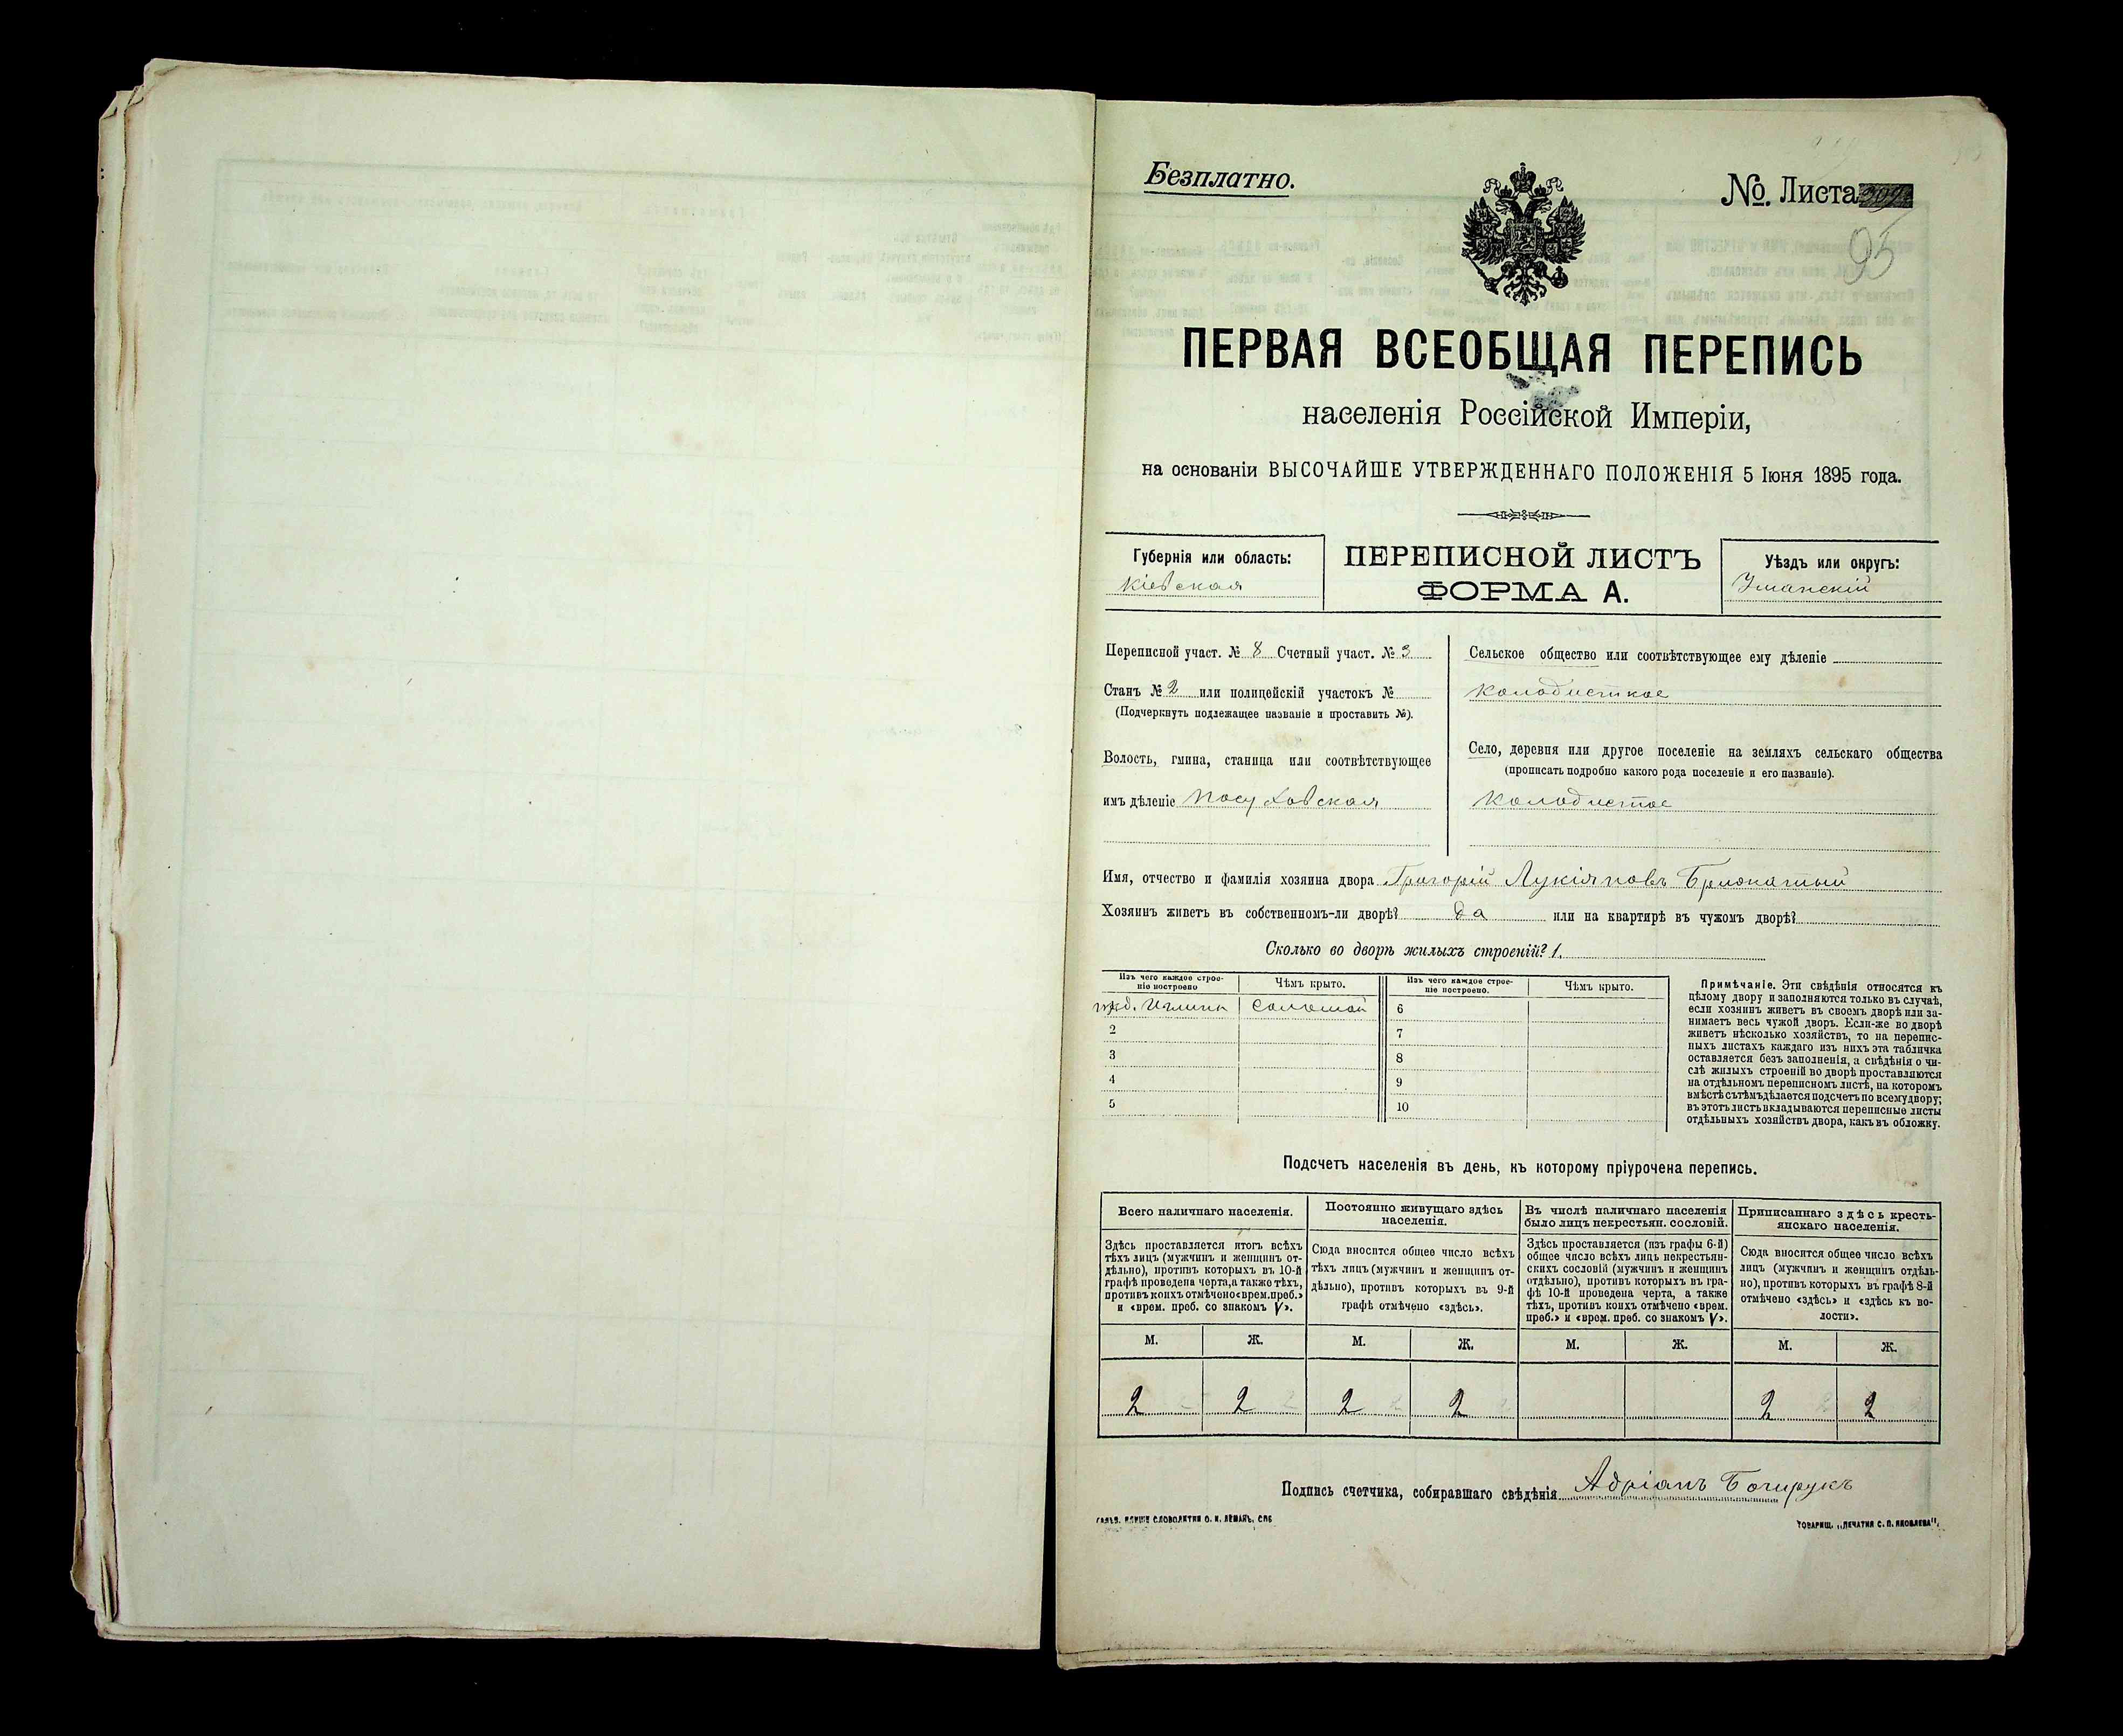 Безплатно.
№. Листа
95
ПЕРВАЯ ВСЕОБЩАЯ ПЕРЕПИСЬ
населенія Россійской Имперіи,
на основаніи ВЫСОЧАЙШЕ УТВЕРЖДЕННАГО ПОЛОЖЕНІЯ 5 Іюня 1895 года.
Губернія или область:
Кіевская
ПЕРЕПИСНОЙ ЛИСТЪ
ФОРМА А.
Уѣздъ или округъ:
Уманскій
Переписной участ. № 8 Счетный участ. № 3
Станъ № 2 или полицейскій участокъ №
(Подчеркнуть подлежащее названіе и проставить №).
Волость, гмина, станица или соотвѣтствующее
имъ дѣленіе Посуховская
Сельское общество или соотвѣтствующее ему дѣленіе
Колодисткое
Село, деревня или другое поселеніе на земляхъ сельскаго общества
(прописать подробно какого рода поселеніе и его названіе).
Колодистое
Имя, отчество и фамилія хозяина двора Григорій Лукіяновъ
Хозяинъ живетъ въ собственномъ-ли дворѣ? да или на квартирѣ въ чужомъ дворѣ?
Сколько во дворѣ жилыхъ строеній? 1.
Изъ чего каждое строе-
ніе построено
Чѣмъ крыто.
Изъ чего каждое строе-
ніе построено.
Чѣмъ крыто.
Соломой
6
2
7
3
8
4
9
5
10
Примѣчаніе. Эти свѣдѣнія относятся къ
цѣлому двору и заполняются только въ случаѣ,
если хозяинъ живетъ въ своемъ дворѣ или за-
нимаетъ весь чужой дворъ. Если-же во дворѣ
живетъ нѣсколько хозяйствъ, то на перепис-
ныхъ листахъ каждаго изъ нихъ эта табличка
оставляется безъ заполненія, а свѣдѣнія о чи-
слѣ жилыхъ строеній во дворѣ проставляются
на отдѣльномъ переписномъ листѣ, на которомъ
вмѣстѣ съ тѣмъ дѣлается подсчетъ по всему двору;
въ этотъ листъ вкладываются переписные листы
отдѣльныхъ хозяйствъ двора, какъ въ обложку.
Подсчетъ населенія въ день, къ которому пріурочена перепись.
Всего наличнаго населенія.
Здѣсь проставляется итогъ всѣхъ
тѣхъ лицъ (мужчинъ и женщинъ от-
дѣльно), противъ которыхъ въ 10-й
графѣ проведена черта, а также тѣхъ,
противъ коихъ отмѣчено «врем. преб.»
и «врем. преб. со знакомъ V».
Постоянно живущаго здѣсь
населенія.
Сюда вносится общее число всѣхъ
тѣхъ лицъ (мужчинъ и женщинъ от-
дѣльно), противъ которыхъ въ 9-й
графѣ отмѣчено «здѣсь».
Въ числѣ наличнаго населенія
было лицъ некрестьян. сословій.
Здѣсь проставляется (изъ графы 6-й)
общее число всѣхъ лицъ некрестьян-
скихъ сословій (мужчинъ и женщинъ
отдѣльно), противъ которыхъ въ гра-
фѣ 10-й проведена черта, а также
тѣхъ, противъ коихъ отмѣчено «врем.
преб.» и «врем. преб. со знакомъ V».
Приписаннаго здѣсь кресть-
янскаго населенія.
Сюда вносится общее число всѣхъ
лицъ (мужчинъ и женщинъ отдѣль-
но), противъ которыхъ въ графѣ 8-й
отмѣчено «здѣсь» и «здѣсь къ во-
лости».
М. Ж. М. Ж. М. Ж. М. Ж.
2 2 2 2 2 2
Подпись счетчика, собиравшаго свѣдѣнія Адріанъ
СЛОВОЛИТНИ О. И. ЛЕМАНЪ, СПБ
ТОВАРИЩ. „ПЕЧАТНЯ С. П. ЯКОВЛЕВА".